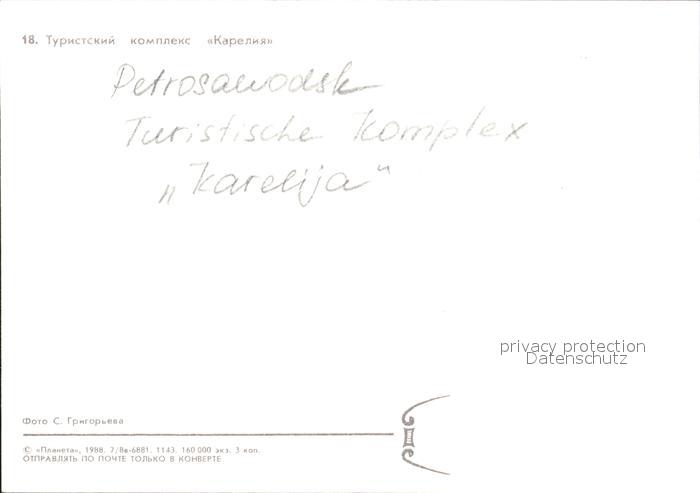 18. Туристский комплекс «Карелия»
Petrosawodsk
Turistische Komplex
„Karelija“
privacy protection
Datenschutz
Фото С. Григорьева
© «Планета», 1988. 7/8в-6881. 1143. 160 000 экз. 3 коп.
ОТПРАВЛЯТЬ ПО ПОЧТЕ ТОЛЬКО В КОНВЕРТЕ